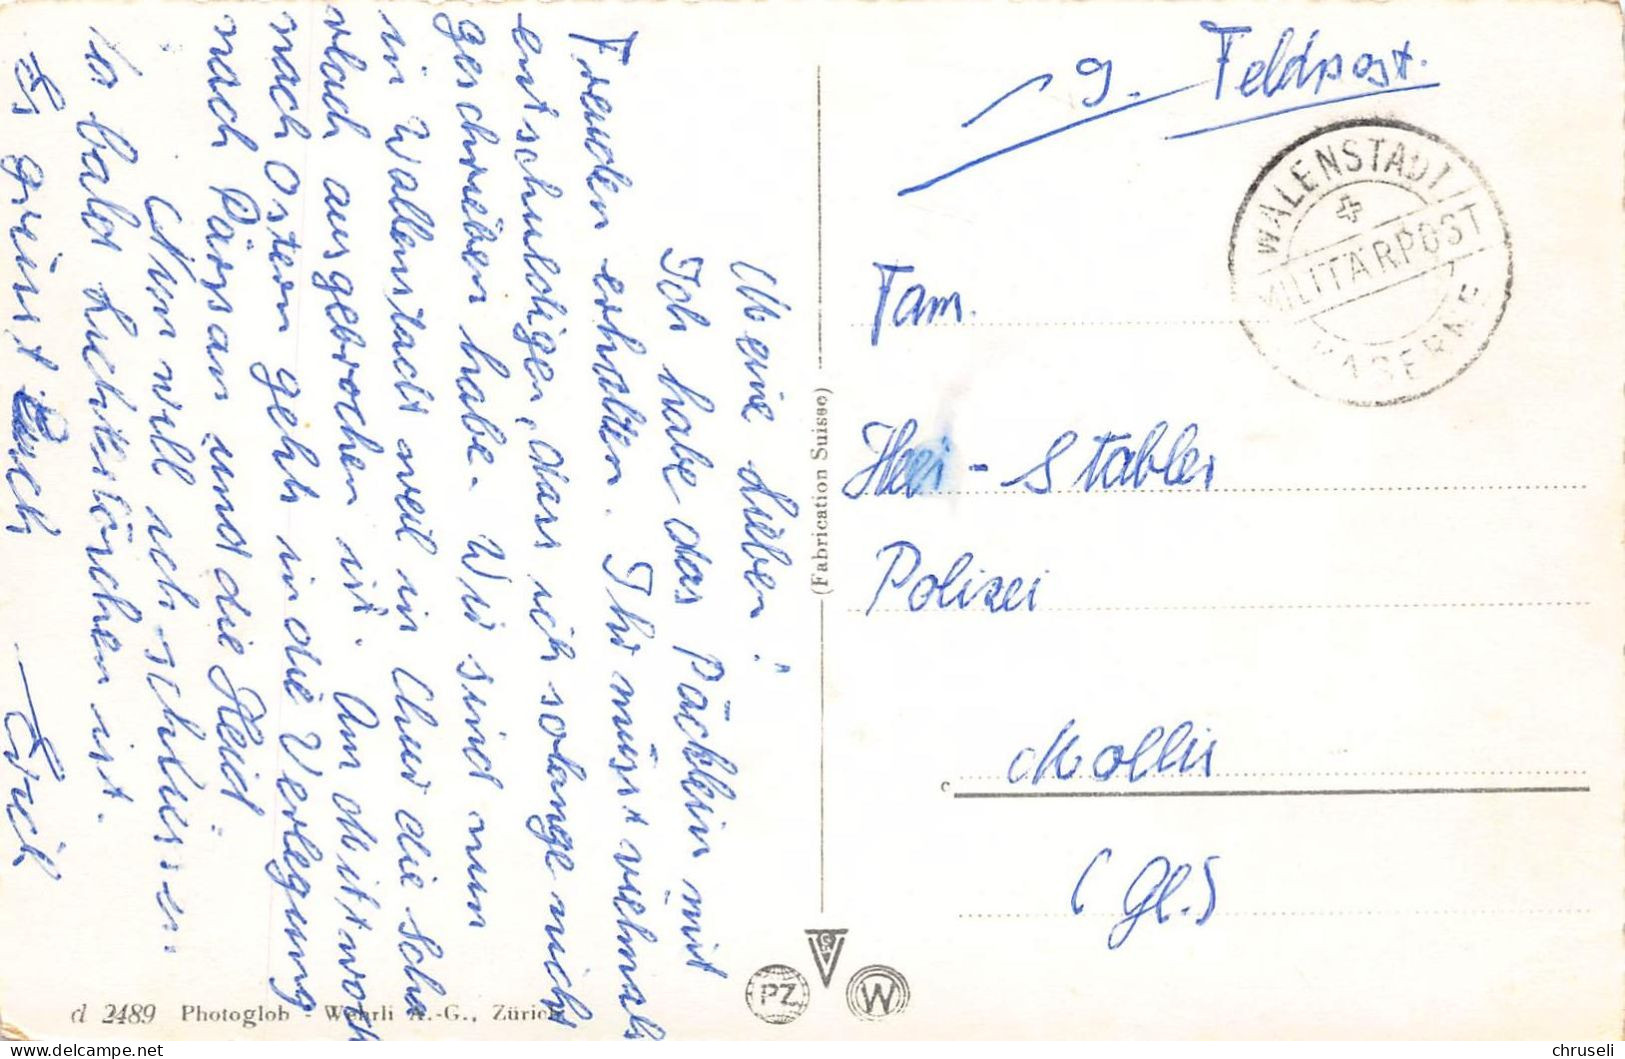 Meine Lieben!
Ich habe das Päcklein mit
Freuden erhalten. Ihr müsst vielmals
entschuldigen, dass ich solange nicht
geschrieben habe. Wir sind nun
in Wallenstadt weil in Chur die Scha
rlach ausgebrochen ist. Am Mittwoch
nach Ostern geht in die Verlegung
nach Pärsan und die Heid.
Nun will ich schliessen
so bald Lichterlöschen ist.
Es grüsst Euch
Erich
d 2489 Photoglob - Wehrli A.-G., Zürich
(Fabrication Suisse)
PZ
W
g. Feldpost.
WALENSTADT/
MILITÄRPOST
KASERNE
Fam.
Hei - Stabler
Polizei
Mollis
(Gl.)
chruseli